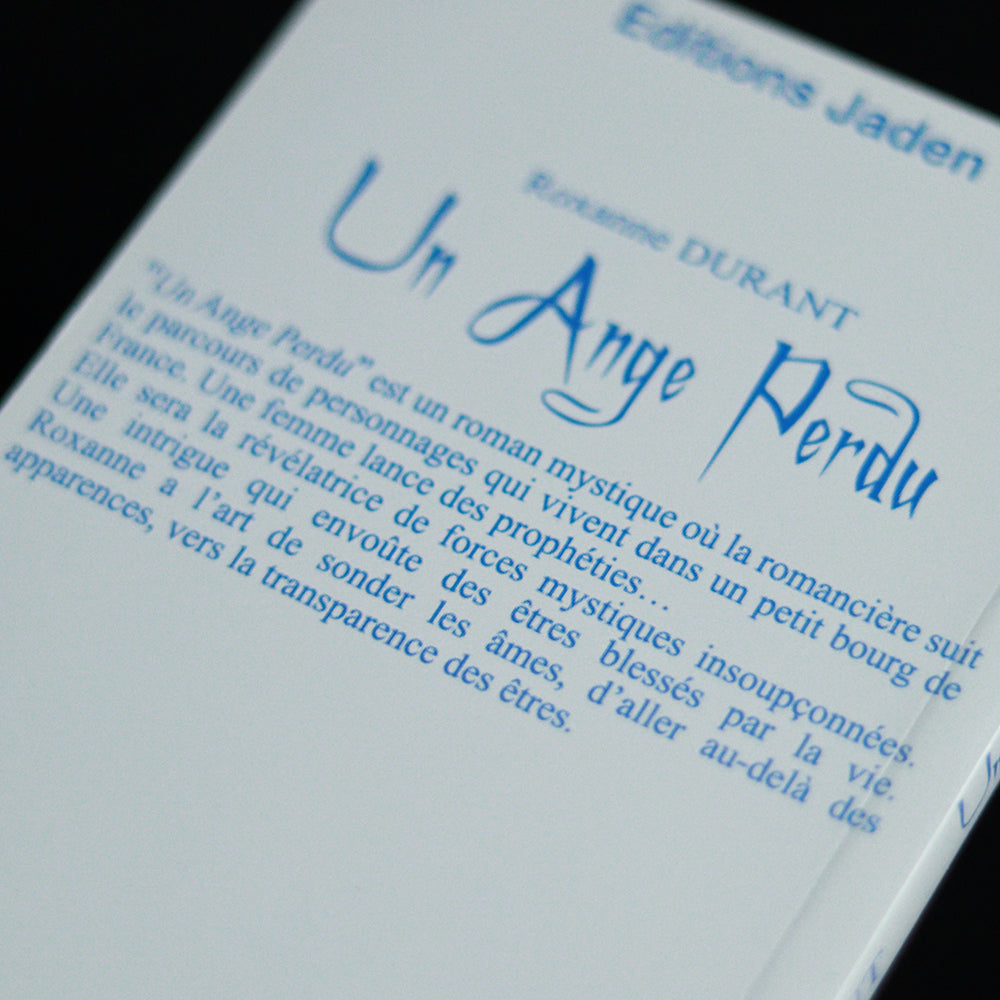 Editions Jaden
Roxanne DURANT
Un Ange Perdu
"Un Ange Perdu" est un roman mystique où la romancière suit
le parcours de personnages qui vivent dans un petit bourg de
France. Une femme lance des prophéties...
Elle sera la révélatrice de forces mystiques insoupçonnées.
Une intrigue qui envoûte des êtres blessés par la vie.
Roxanne a l'art de sonder les âmes, d'aller au-delà des
apparences, vers la transparence des êtres.